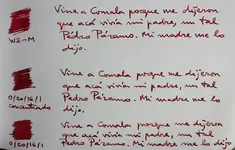 Vine a Comala porque me dijeron
que acá vivía mi padre, un tal
Pedro Páramo. Mi madre me lo
dijo.
WS-M
Vine a Comala porque me dijeron
que acá vivía mi padre, un tal
Pedro Páramo. Mi madre me lo
dijo.
0/20/16/1
Concentrado
Vine a Comala porque me dijeron
que acá vivía mi padre, un tal
Pedro Páramo. Mi madre me lo
dijo.
0/20/16/1